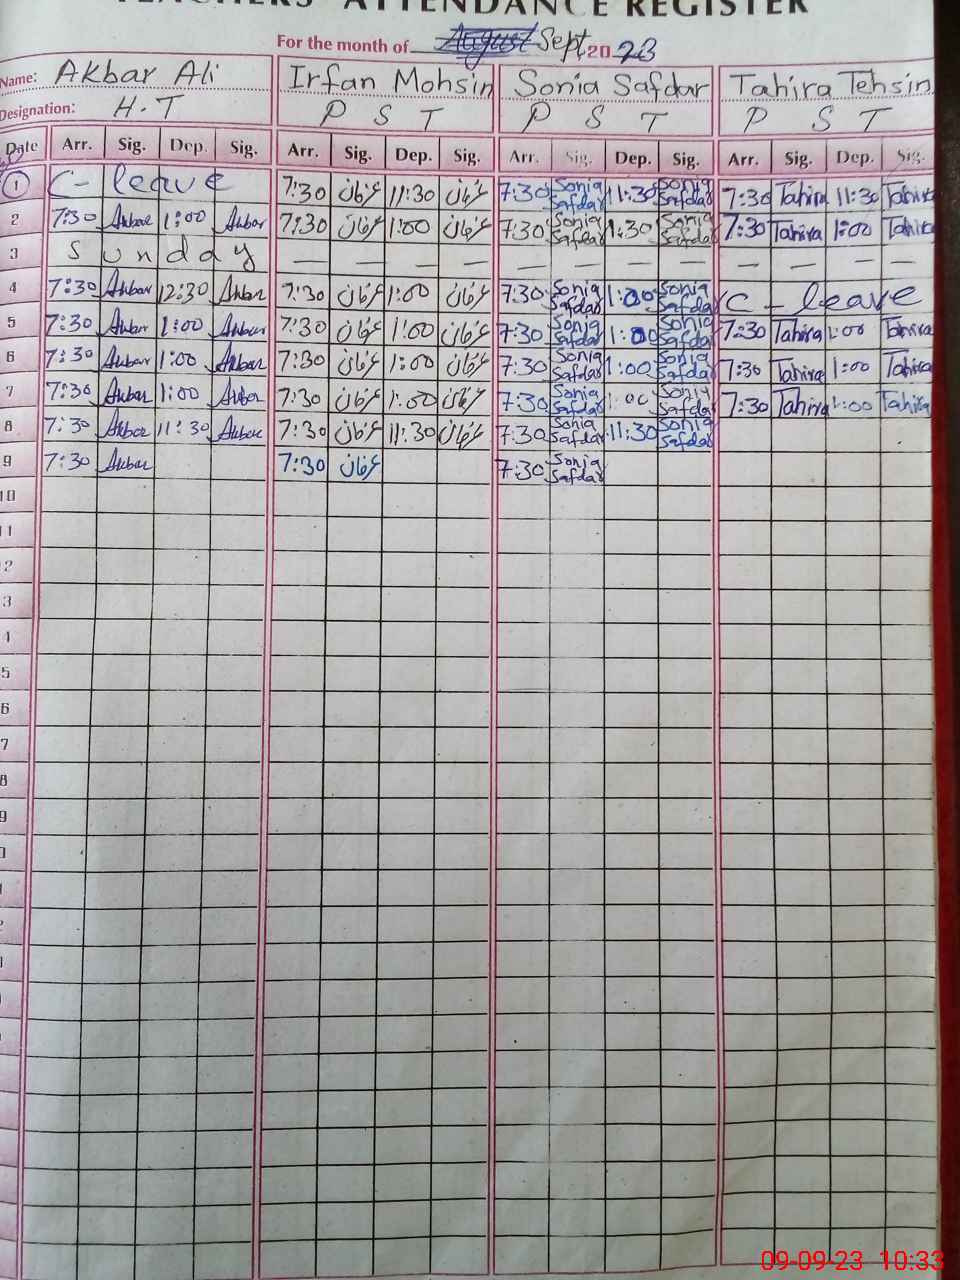 TEACHERS' ATTENDANCE REGISTER
For the month of August Sept 2023
Name: Akbar Ali Irfan Mohsin Sonia Safdar Tahira Tehsin
Designation: H.T P S T P S T P S T
Date Arr. Sig. Dep. Sig. Arr. Sig. Dep. Sig. Arr. Sig. Dep. Sig. Arr. Sig. Dep. Sig.
1 C-leave 7:30 عرفان 11:30 عرفان 7:30 Sonia Safdar 11:30 Sonia Safdar 7:30 Tahira 11:30 Tahira
2 7:30 Akbar 1:00 Akbar 7:30 عرفان 1:00 عرفان 7:30 Sonia Safdar 1:30 Sonia Safdar 7:30 Tahira 1:00 Tahira
3 Sunday — — — — — — — — — — — —
4 7:30 Akbar 12:30 Akbar 7:30 عرفان 1:00 عرفان 7:30 Sonia Safdar 1:00 Sonia Safdar C-leave
5 7:30 Akbar 1:00 Akbar 7:30 عرفان 1:00 عرفان 7:30 Sonia Safdar 1:00 Sonia Safdar 7:30 Tahira 1:00 Tahira
6 7:30 Akbar 1:00 Akbar 7:30 عرفان 1:00 عرفان 7:30 Sonia Safdar 1:00 Sonia Safdar 7:30 Tahira 1:00 Tahira
7 7:30 Akbar 1:00 Akbar 7:30 عرفان 1:00 عرفان 7:30 Sonia Safdar 1:00 Sonia Safdar 7:30 Tahira 1:00 Tahira
8 7:30 Akbar 11:30 Akbar 7:30 عرفان 11:30 عرفان 7:30 Sonia Safdar 11:30 Sonia Safdar
9 7:30 Akbar 7:30 عرفان 7:30 Sonia Safdar
10
11
2
3
4
5
6
7
8
9
09-09-23 10:33